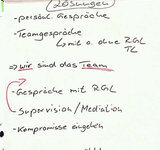 Lösungen
- persönl. Gespräche
- Teamgespräche
↳ mit o. ohne RGL
TL
⇒ Wir sind das Team
- Gespräche mit RGL
- Supervision / Mediation
- Kompromisse eingehen